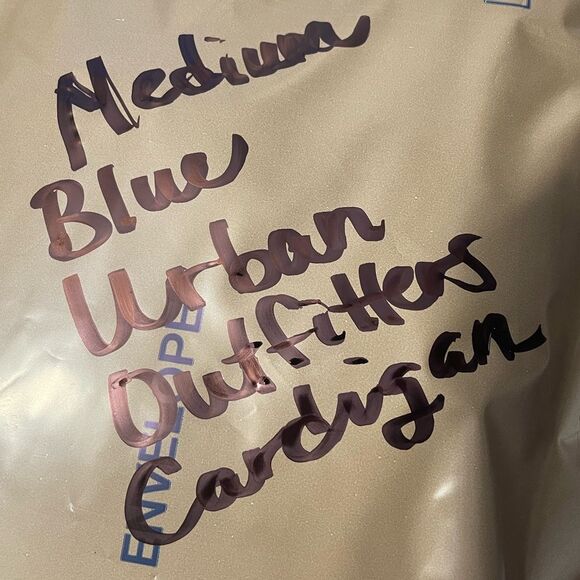 Medium
Blue
Urban
Outfitters
Cardigan
ENVELOPE